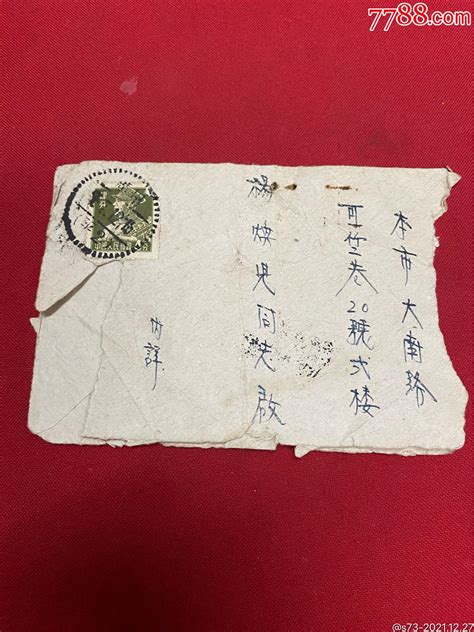 7788.com
本市大南路
可竺巷20號弍楼
楊焕児同志啟
内詳
@s73-2021.12.27